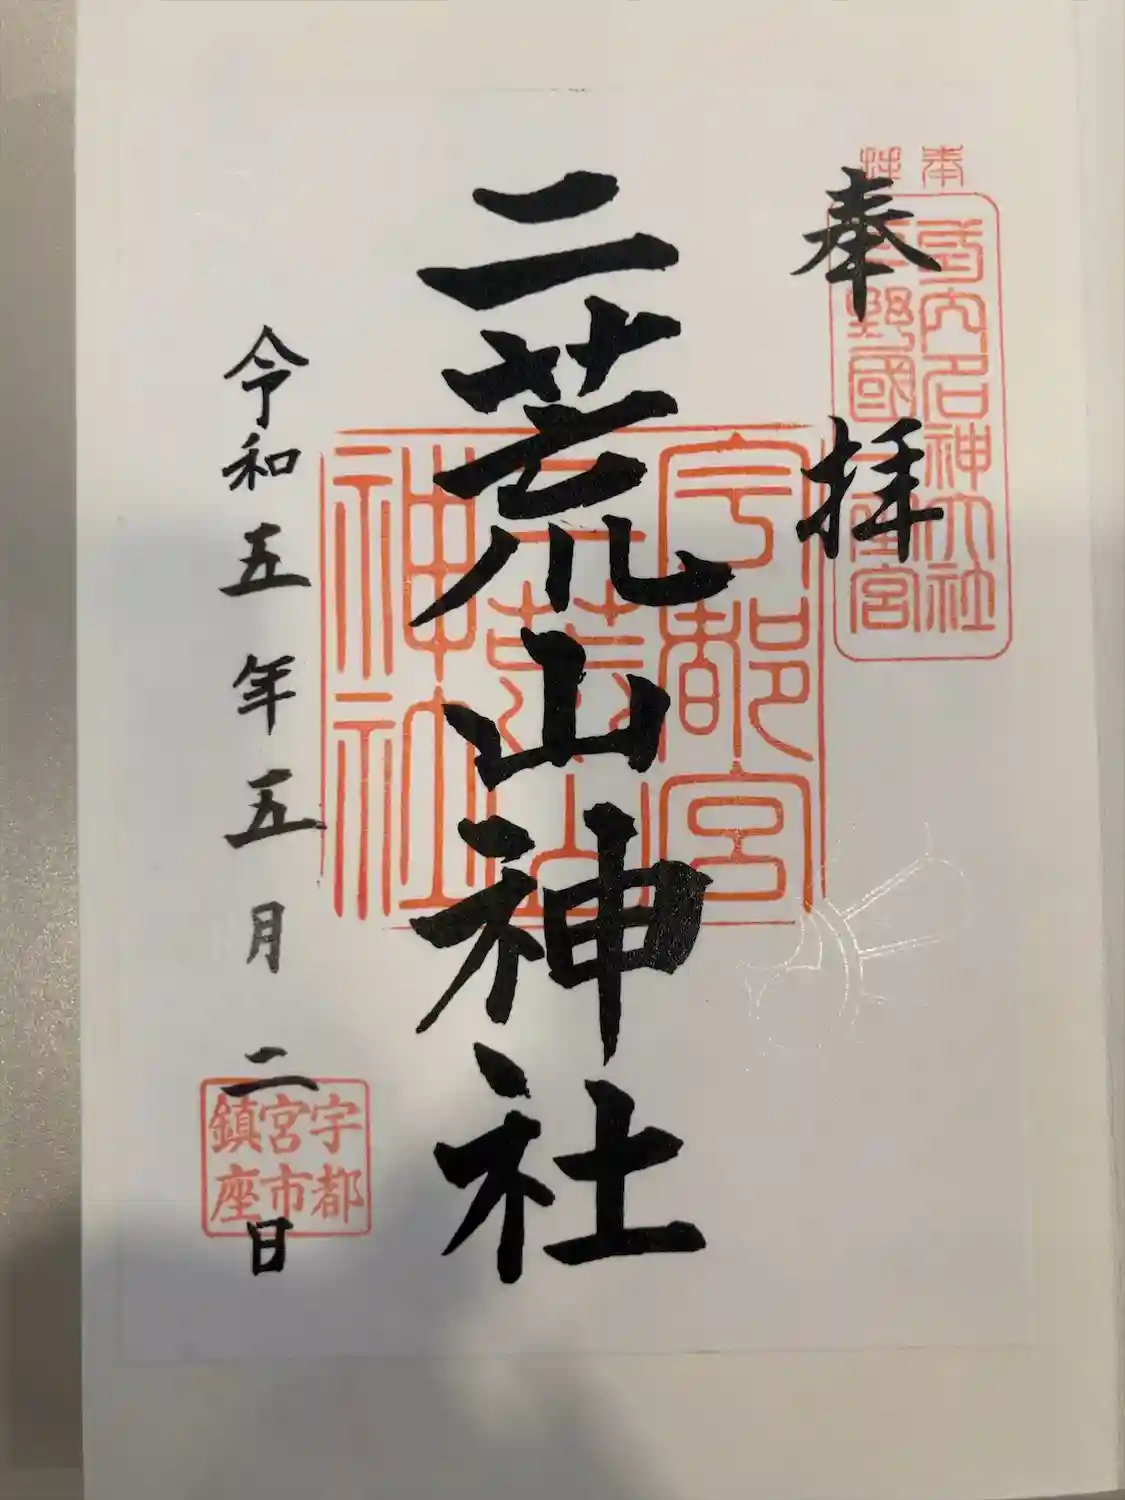 奉拝
奉拝
式内名神大社
下野國一宮
二荒山神社
宇都宮
二荒山
神社
令和五年五月二日
宇都
宮市
鎮座